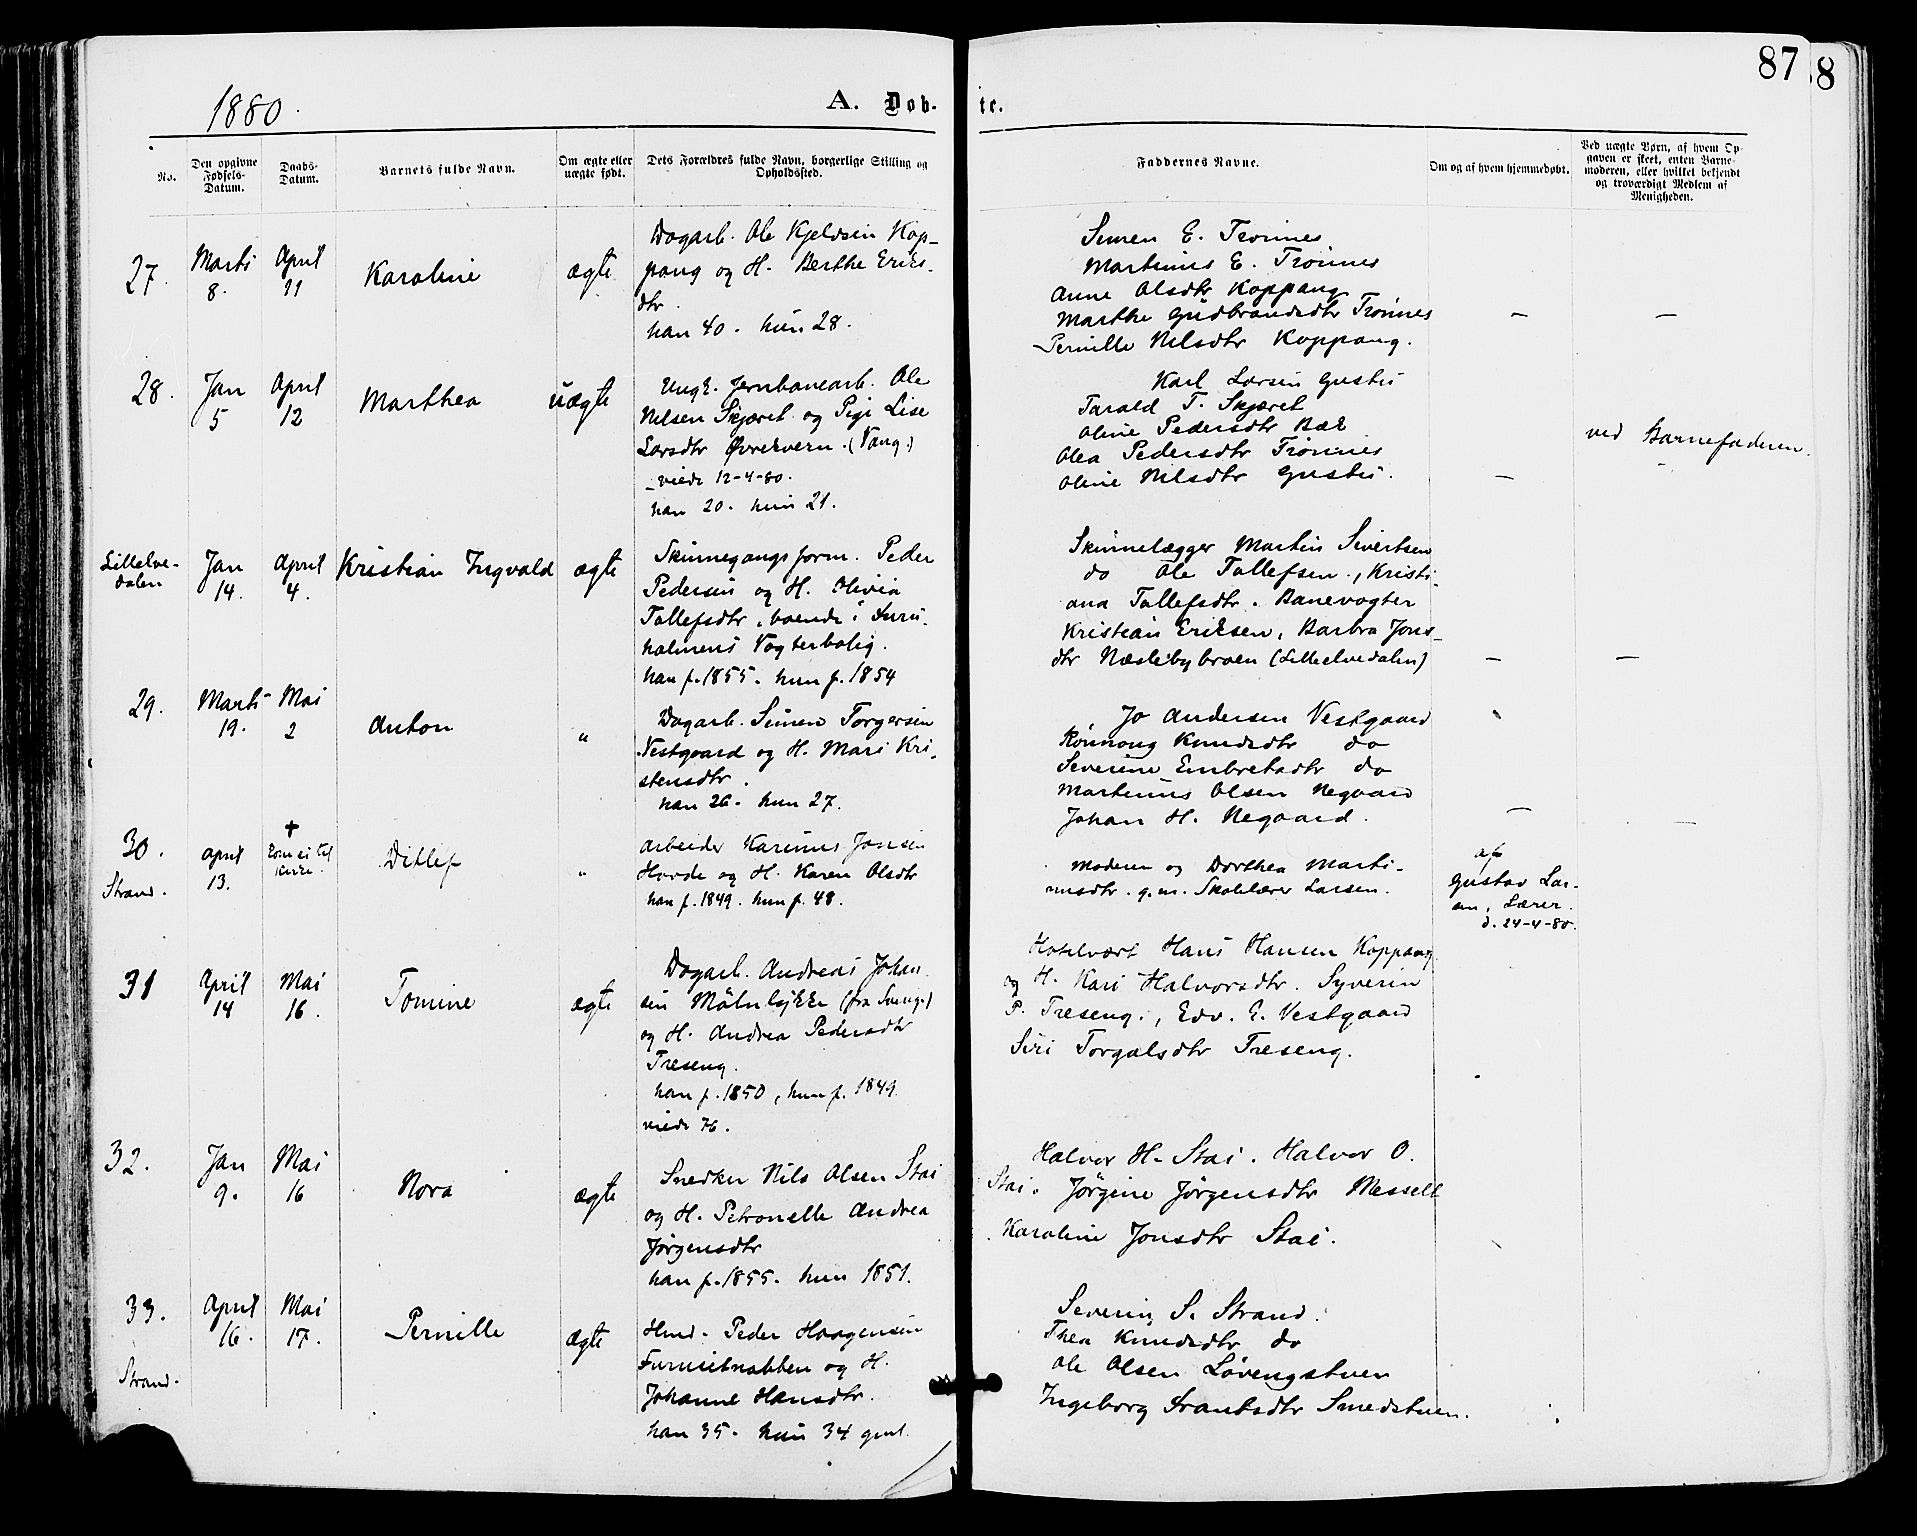 87
8
1880.
A. Døb-
te.
No.
Den opgivne
Fødsels-
Datum.
Daabs-
Datum.
Barnets fulde Navn.
Om ægte eller
uægte født.
Dets Forældres fulde Navn, borgerlige Stilling og
Opholdssted.
Faddernes Navne.
Om og af hvem hjemmedøbt.
Ved uægte Børn, af hvem Op-
gaven er skeet, enten Barne-
moderen, eller hvilket bekjendt
og troværdigt Medlem af
Menigheden.
27.
Marts
8.
April
11
Karoline
ægte
Dagarb. Ole Kjeldsen Kop-
pang og H. Berthe Eriks-
dtr
han 40. hun 28.
Simen E. Trønnes
Martinus E. Trønnes
Anne Olsdtr Koppang
Marthe Gudbrandsdtr Trønnes
Pernille Nilsdtr Koppang.
–
–
28.
Jan
5
April
12
Marthea
uægte
Ungk. Jernbanearb. Ole
Nilsen Skjæret og Pige Lise
Larsdtr Øvrekvern. (Vang.)
viede 12-4-80.
han 20. hun 21.
Karl Larsen
Tarald T. Skjæret
Oline Pedersdtr Bæk
Olea Pedersdtr Trønnes
Oline Nilsdtr
–
ved Barnefaderen.
Lillelve-
dalen
Jan
14.
April
4.
Kristian Ingvald
ægte
Skinnegangsform. Peder
Pedersen og H. Olivia
Tollefsdtr, boende i
holmens Vogterbolig.
han f. 1855. hun f. 1854
Skinnelægger Martin Sivertsen
do Ole Tollefsen, Kristi-
ana Tollefsdtr. Banevogter
Kristian Eriksen, Barbra Jons-
dtr Næslebybroen (Lilleelvedalen)
–
–
29.
Marts
19.
Mai
2
Anton
"
Dagarb. Simen Torgersen
Vestgaard og H. Mari Kri-
stensdtr.
han 26. hun 27.
Jo Andersen Vestgaard
Rønnoug Knudsdtr do
Severine Embretsdtr do
Martinus Olsen Negaard
Johan H. Negaard.
–
–
30.
Strand.
April
13.
+
kom ei til
kirke.
Ditlef
"
Arbeider Karinus Jonsen
Horde og H. Karen Olsdtr
han f. 1849. hun f. 48.
Moderen og Dorthea Marti-
nusdtr. g. m. Skolelærer Larsen.
af
Gustav Lar-
sen, Lærer.
d. 24-4-80.
31
April
14
Mai
16.
Tomine
ægte
Dagarb. Andreas Johan-
sen Mölnbykke (fra Sverige)
og H. Andrea Pedersdtr
Treseng.
han f. 1850, hun f. 1849
viede 76.
Hotelvært Hans Hansen Koppang
og H. Kari Halvorsdtr. Syverin
P. Treseng., Edv. E. Vestgaard
Siri Torgalsdtr Treseng.
32.
Jan
9.
Mai
16
Nora
ægte
Snedker Nils Olsen Stai
og H. Petronelle Andrea
Jørgensdtr
han f. 1855. hun 1851.
Halvor H. Stai. Halvor O.
Stai. Jørgine Jørgensdtr Messelt
Karoline Jonsdtr Stai.
33.
Strand.
April
16.
Mai
17.
Pernille
Ægte
Hmd. Peder Haagensen
Furusetnabben og H.
Johanne Hansdtr.
han 35. hun 34 gml.
Severin S. Strand.
Thea Knudsdtr do
Ole Olsen Løvengstuen
Ingeborg Frantsdtr Smedstuen.